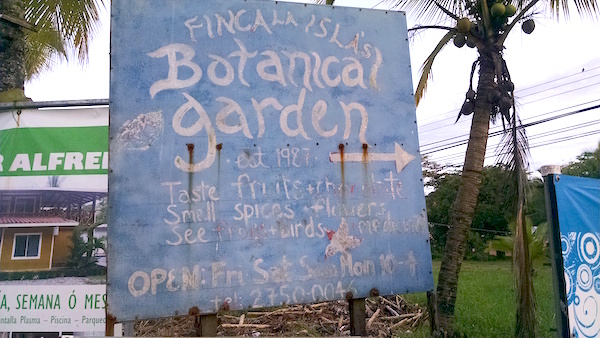 FINCA LA ISLA'S
Botanical
garden
est 1987
Taste fruits + chocolate
Smell spices + flowers
See frogs + birds
OPEN: Fri Sat Sun Mon 10-4
tel: 2750-0046
R ALFRE
A, SEMANA Ó MES
ntalla Plasma – Piscina – Parque